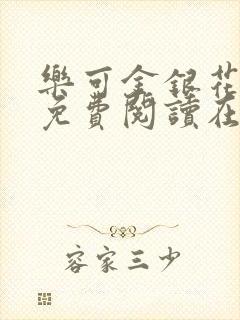 樂可金銀花
免費閱讀在
容家三少